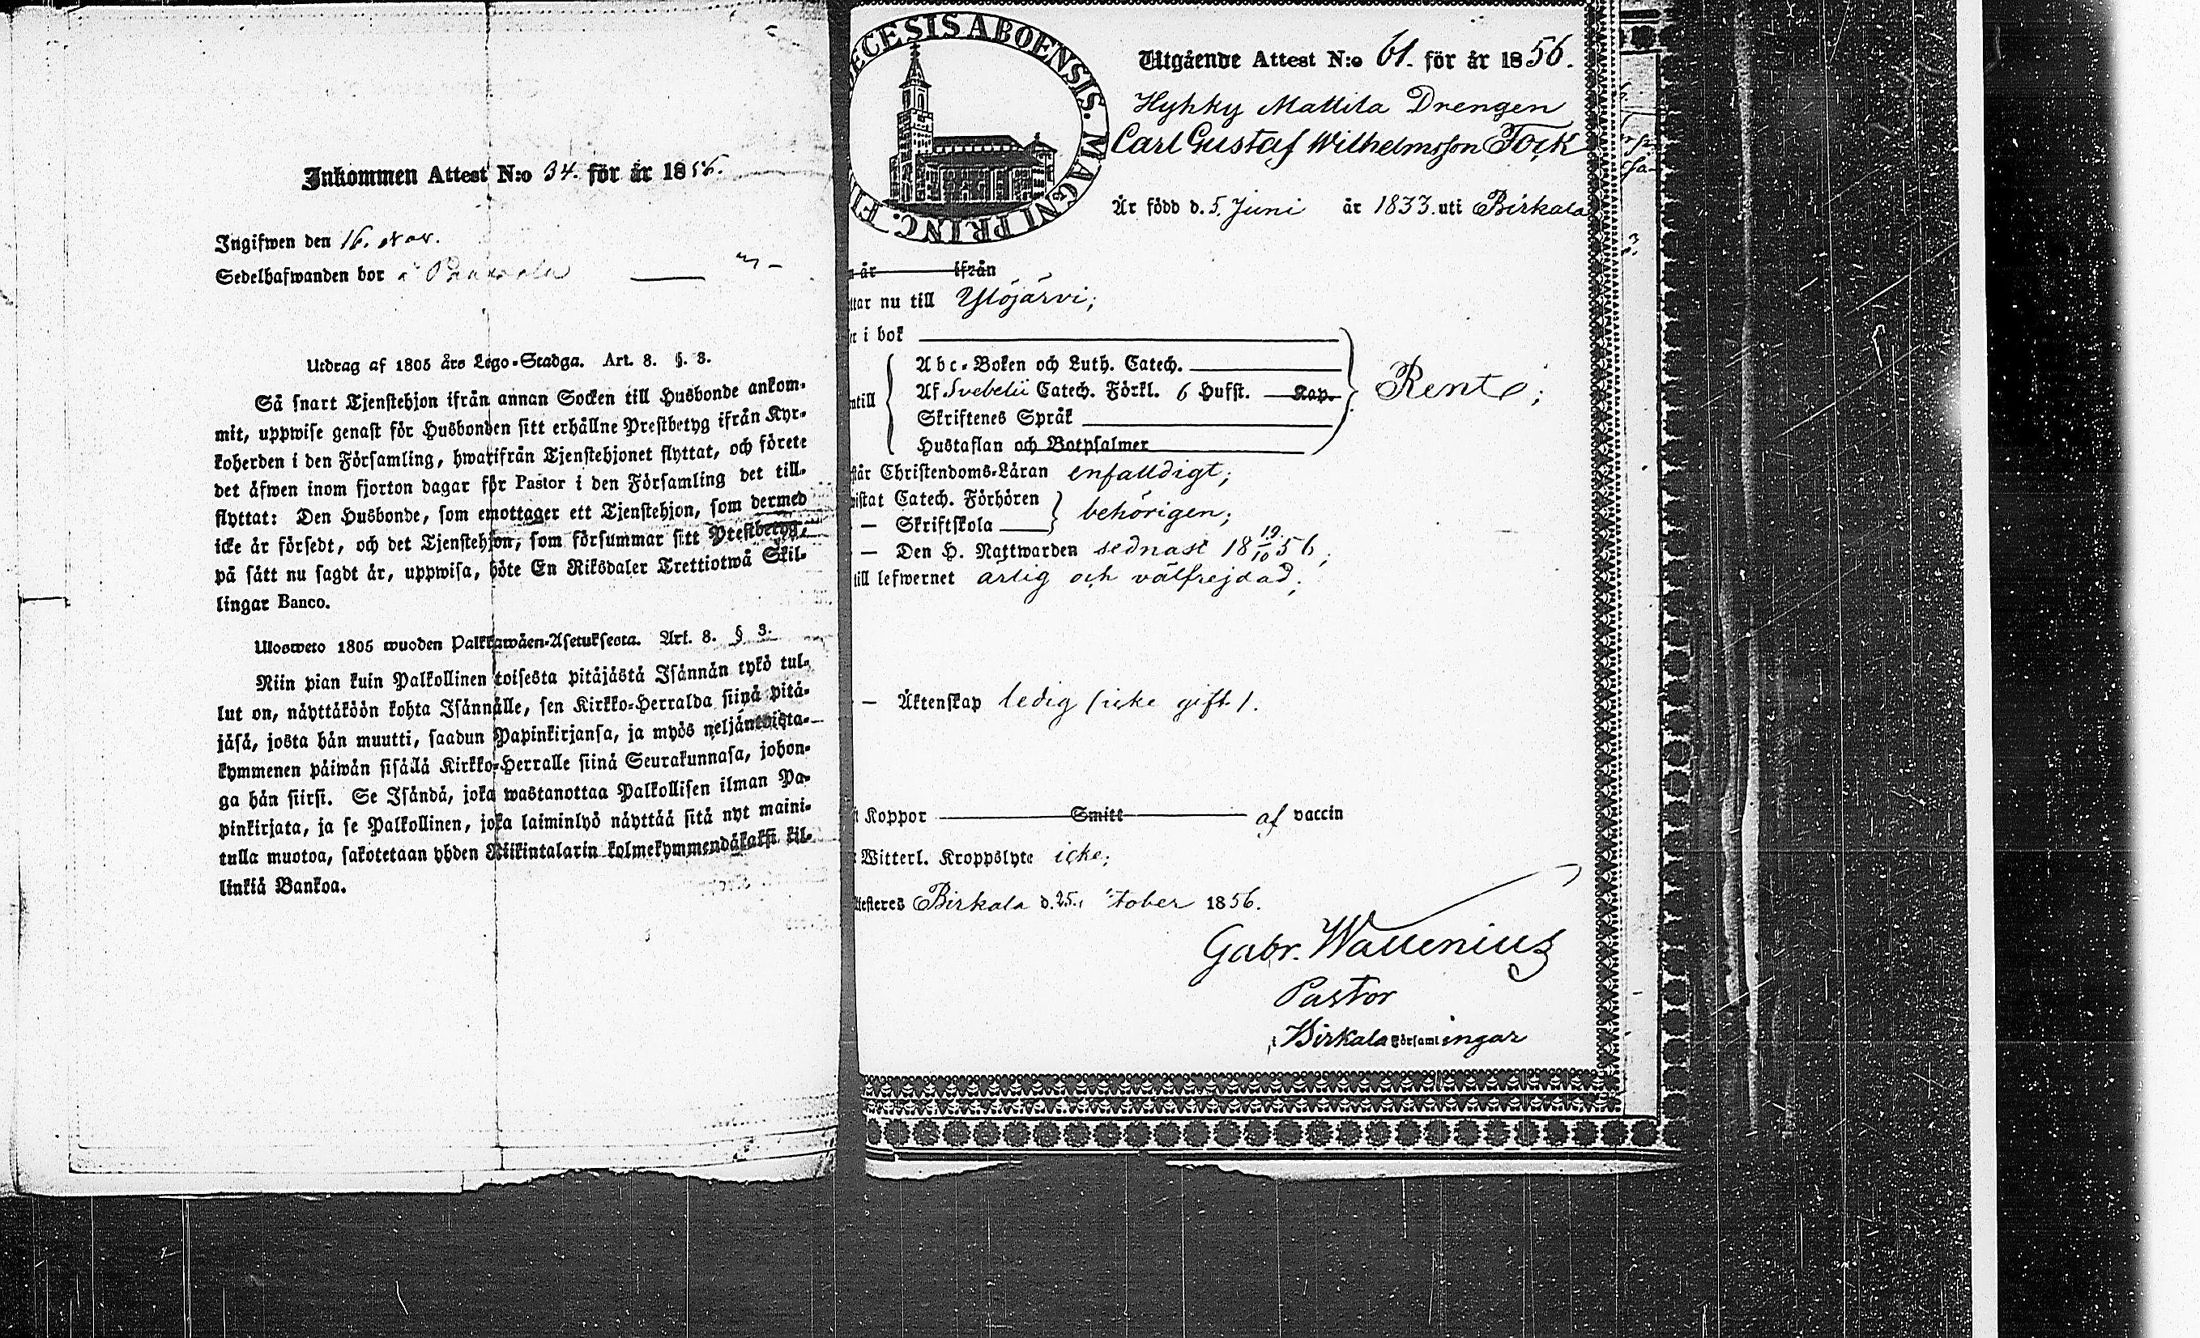 Inkommen Attest N:o 34. för år 1856.
Ingifwen den 16. Nov.
Sedelhafwanden bor
Utdrag af 1805 års Lego-Stadga. Art. 8. §. 3.
Så snart Tjenstehjon ifrån annan Socken till Husbonde ankom-
mit, uppwise genast för Husbonden sitt erhållne Prestbetyg ifrån Kyr-
koherden i den Församling, hwarifrån Tjenstehjonet flyttat, och förete
det äfwen inom fjorton dagar för Pastor i den Församling det till-
flyttat: Den Husbonde, som emottager ett Tjenstehjon, som dermed
icke är försedt, och det Tjenstehjon, som försummar sitt Prestbetyg,
på sätt nu sagdt är, uppwisa, böte En Riksdaler Trettiotwå Skil-
lingar Banco.
Ulosweto 1805 wuoden Palkkawäen-Asetuksesta. Art. 8. § 3.
Niin pian kuin Palkollinen toisesta pitäjästä Isännän tykö tul-
lut on, näyttäköön kohta Isännälle, sen Kirkko-Herralda siinä pitä-
jäsä, josta hän muutti, saadun Papinkirjansa, ja myös neljäntoista-
kymmenen päiwän sisällä Kirkko-Herralle siinä Seurakunnasa, johon-
ga hän siirsi. Se Isändä, joka wastanottaa Palkollisen ilman Pa-
pinkirjata, ja se Palkollinen, joka laiminlyö näyttää sitä nyt maini-
tulla muotoa, sakotetaan yhden Riikintalarin kolmekymmendäkaksi kil-
linkiä Bankoa.
ECESIS ABOENSIS. MAGNI PRINC. FI
Utgående Attest N:o 61. för år 1856.
Hyhky Mattila Drengen
Carl Gustaf Wilhelmsson Fock
Är född d. 5. Juni år 1833. uti Birkala
år ifrån
ttar nu till Ylöjärvi;
i bok
Abc-Boken och Luth. Catech.
ntill Af Svebelii Catech. Förkl. 6 Hufst. Kap. Rent;
Skriftenes Språk
Hustaflan och Botpsalmer
står Christendoms-Läran enfalldigt;
wistat Catech. Förhören behörigen;
— Skriftskola
— Den H. Nattwarden sednast 18 19/10 56;
till lefwernet ärlig och välfrejdad;
— Äktenskap ledig (icke gift).
Koppor Smitt af vaccin
Witterl. Kroppslyte icke;
testeres Birkala d. 25. tober 1856.
Gabr. Wallenius
Pastor
i Birkala Församlingar